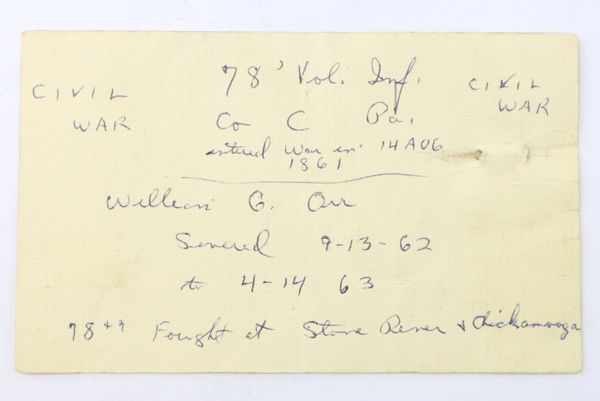 CIVIL WAR
78' Vol. Inf.
CIVIL WAR
Co C Pa.
entered War in 14 AUG
1861
William G. Orr
Served 9-13-62
to 4-14 63
78th Fought at Stone River + Chickamauga